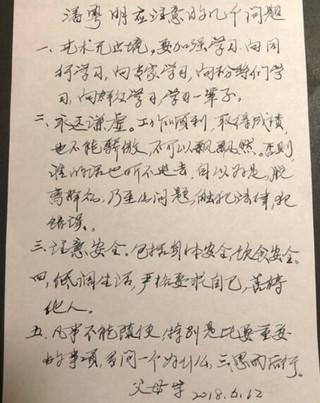 潘粤明应注意的几个问题
一、艺术无止境。要加强学习。向同
行学习,向专家学习,向粉丝们学
习,向群众学习,学习一辈子。
二、永远谦虚。工作顺利,取得成绩,
也不能骄傲,不可以飘飘然。否则
谁的话也听不进去,自以为是,脱
离群众,乃至出问题,触犯法律,犯
错误。
三、注意安全。包括身体安全,饮食安全。
四、低调生活,严格要求自己,善待
他人。
五、凡事不能随便,特别是比较重要
的事项,多问一个为什么,三思而后行。
父母字 2018.6.12